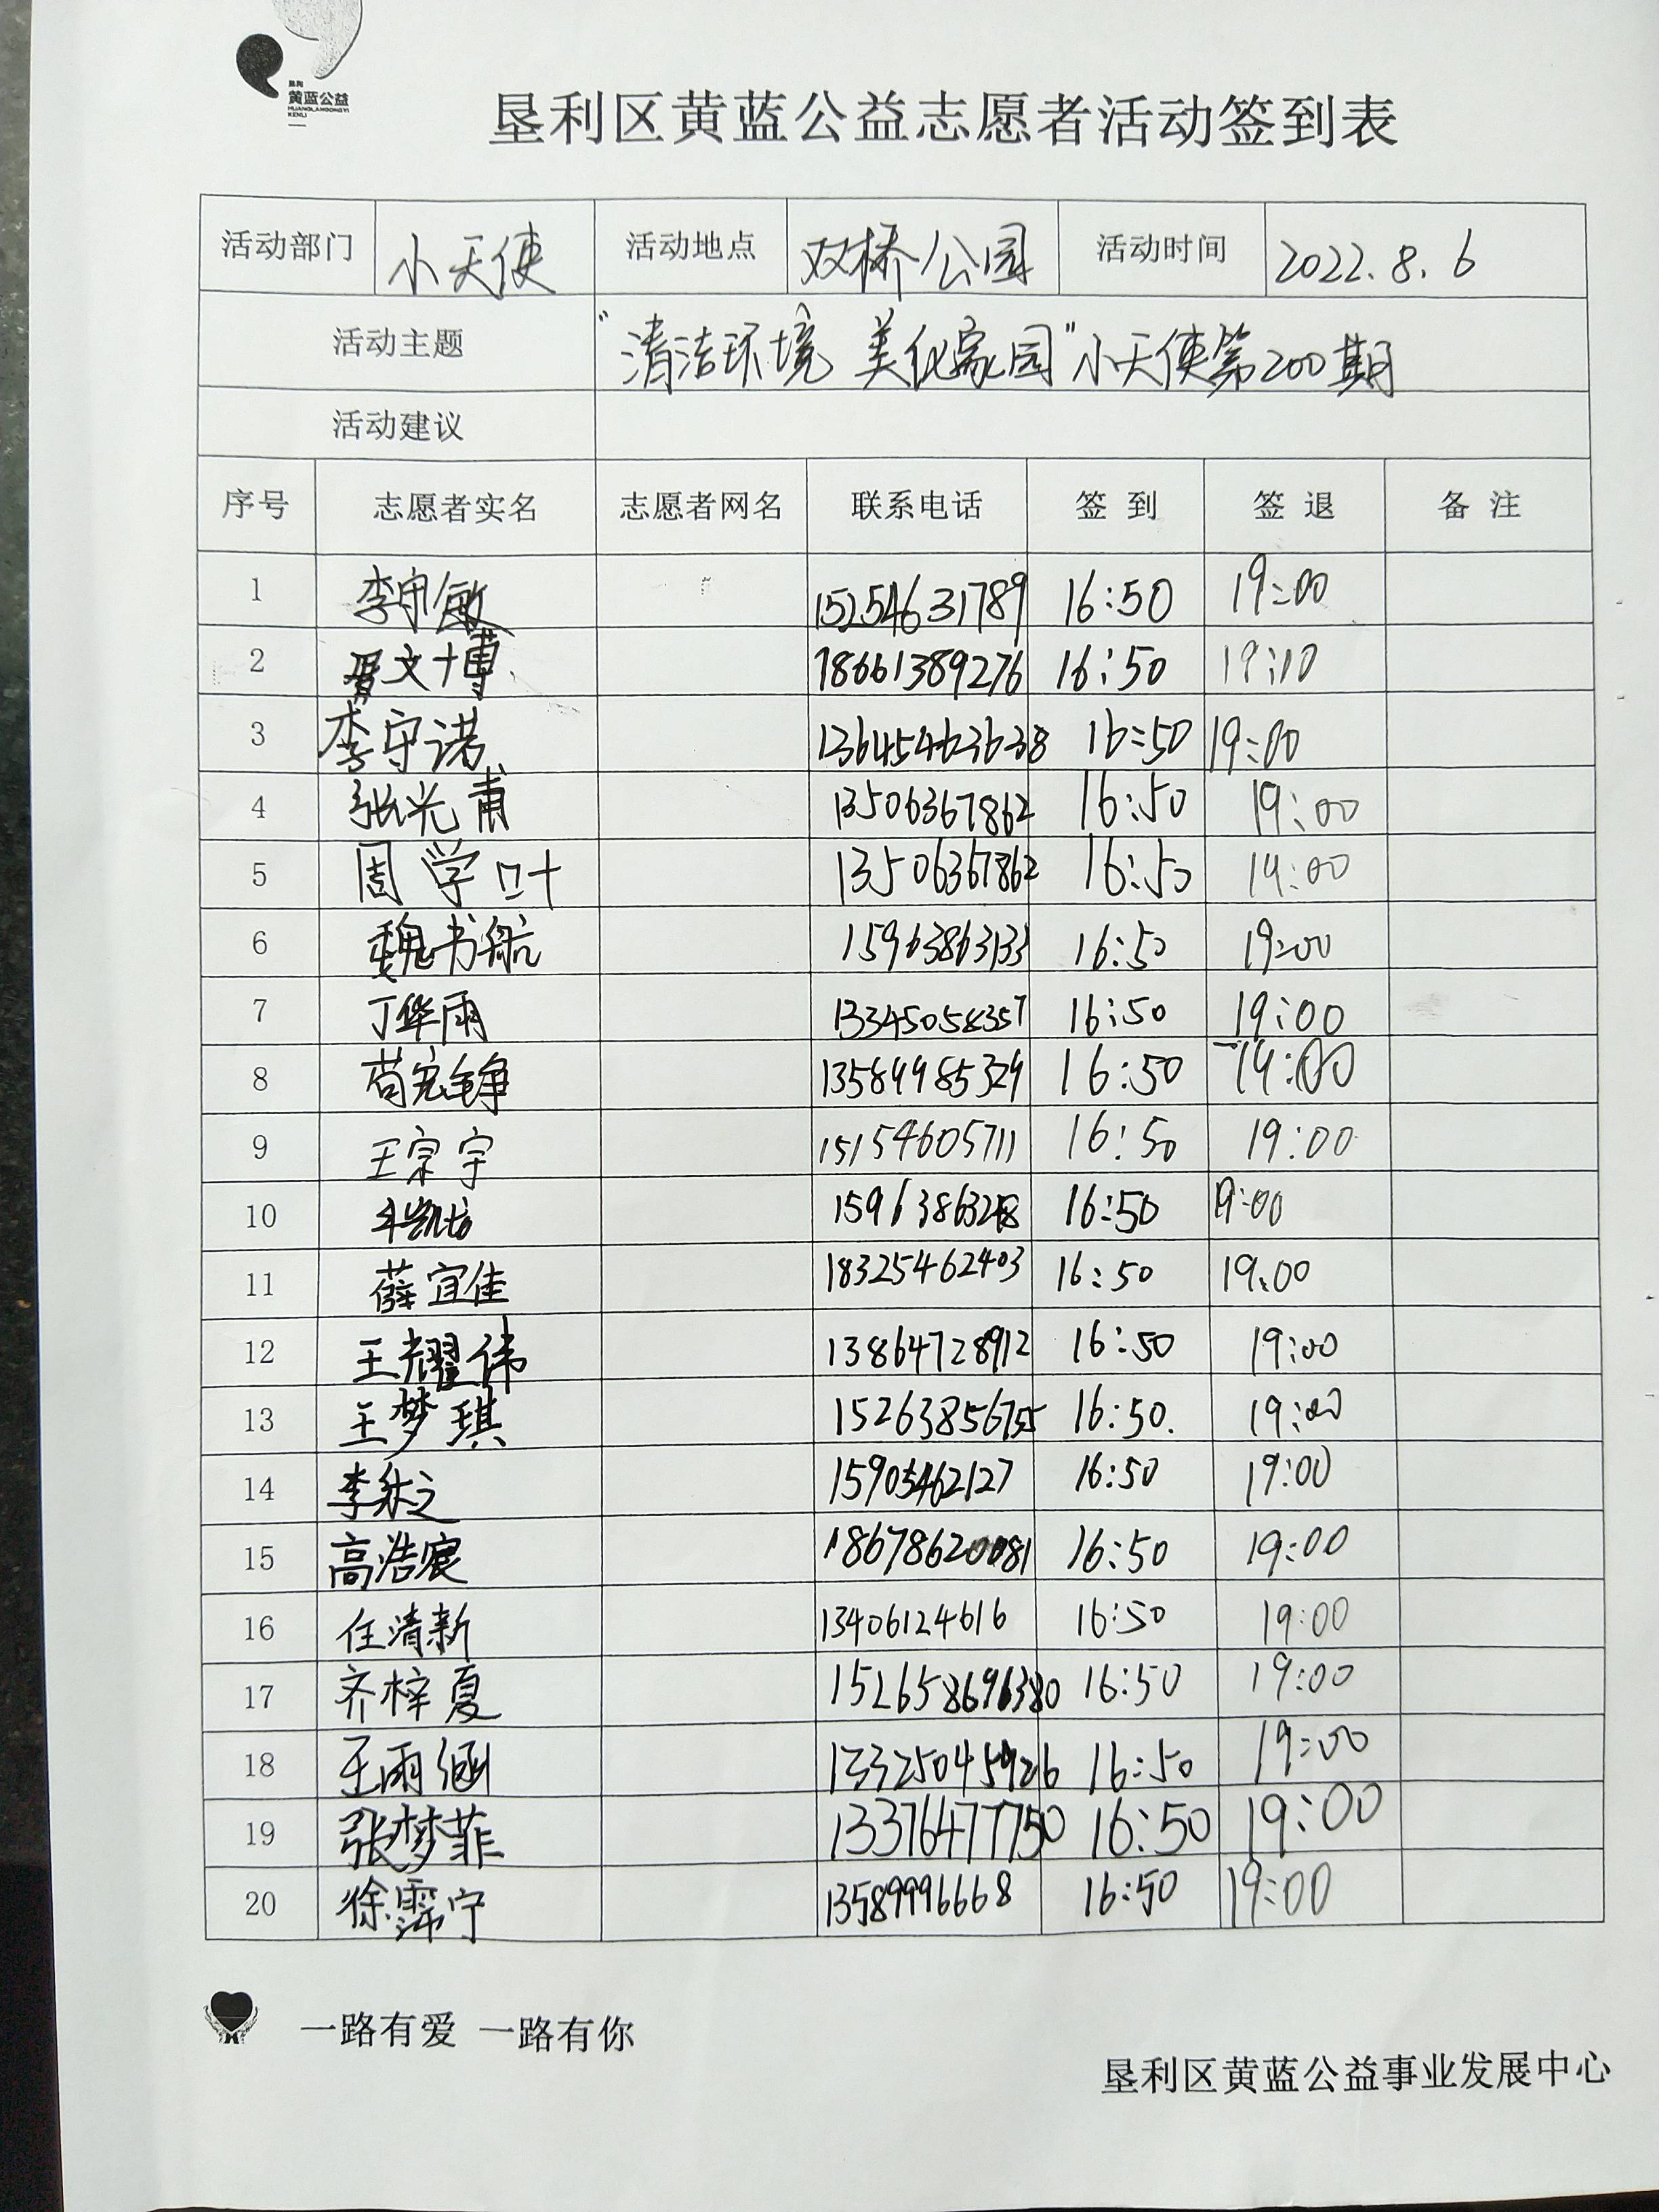 垦利
黄蓝公益
HUANGLANGONGYI
KENLI
垦利区黄蓝公益志愿者活动签到表
活动部门 小天使 活动地点 双桥公园 活动时间 2022.8.6
活动主题 "清洁环境 美化家园"小天使第200期
活动建议
序号 志愿者实名 志愿者网名 联系电话 签到 签退 备注
1 李守敏 15254631789 16:50 19:00
2 文博 18661389276 16:50 19:10
3 李守诺 13645463638 16:50 19:00
4 张光甫 13506367862 16:50 19:00
5 周学叶 13506367862 16:50 19:00
6 魏书航 15963863133 16:50 19:00
7 丁华雨 13345058357 16:50 19:00
8 苟宏铮 13589985329 16:50 19:00
9 王宗宇 15154605711 16:50 19:00
10 16:50 19:00
11 薛宜佳 18325462403 16:50 19:00
12 王耀伟 13864728912 16:50 19:00
13 王梦琪 15263856755 16:50. 19:00
14 李 之 15905462127 16:50 19:00
15 高浩宸 18678620081 16:50 19:00
16 任清新 13406124616 16:50 19:00
17 齐梓夏 16:50 19:00
18 王雨涵 13325045926 16:50 19:00
19 张梦菲 13376477750 16:50 19:00
20 徐霈宁 13589996668 16:50 19:00
一路有爱 一路有你
垦利区黄蓝公益事业发展中心